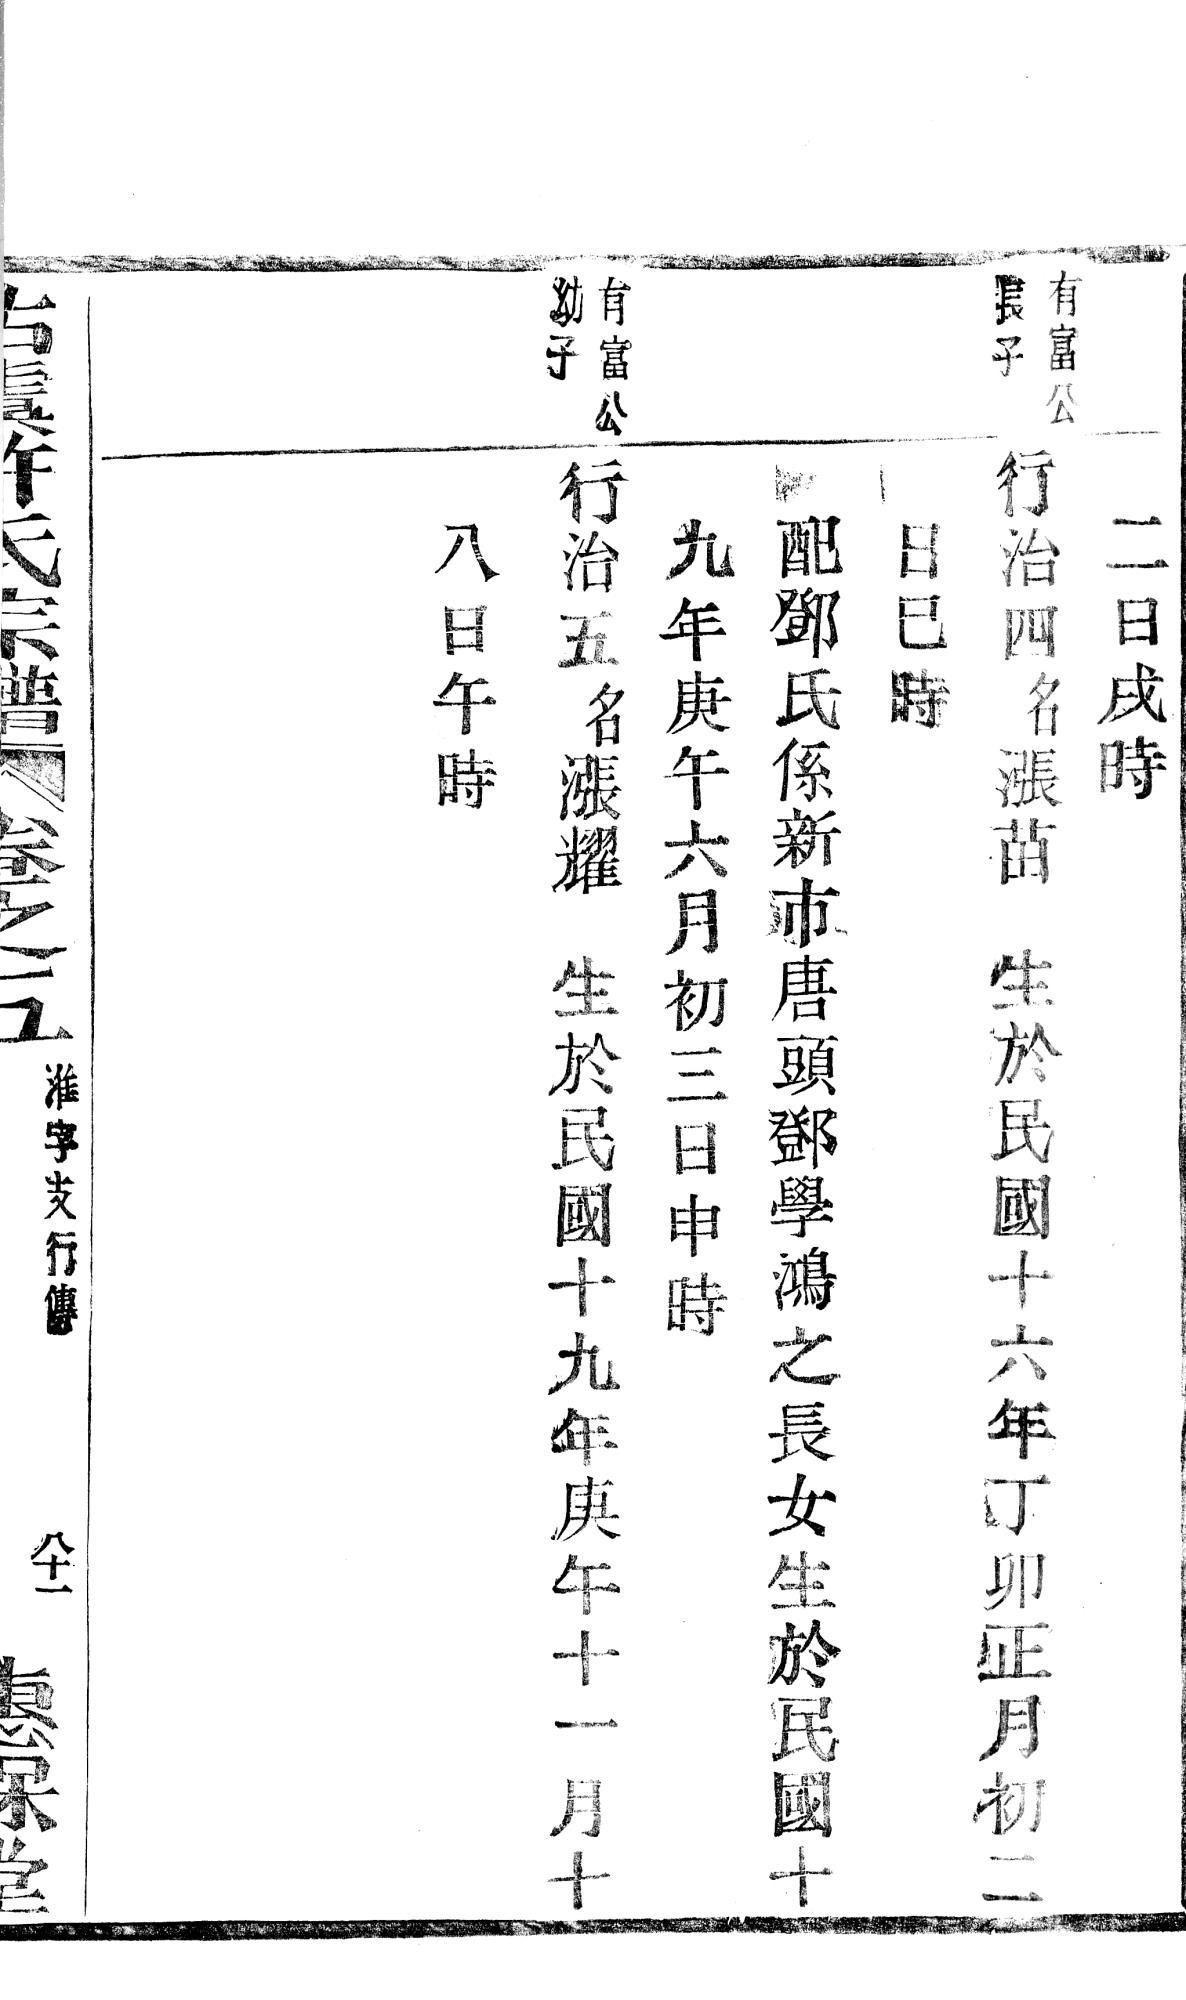 二日戌時
有富公
長子
行治四名漲苗　生於民國十六年丁卯正月初二
日巳時
配鄧氏係新市唐頭鄧學鴻之長女生於民國十
九年庚午六月初三日申時
有富公
幼子
行治五名漲耀　生於民國十九年庚午十一月十
八日午時
古虞許氏宗譜　卷之五
淮字支行傳
八十一
惠保堂